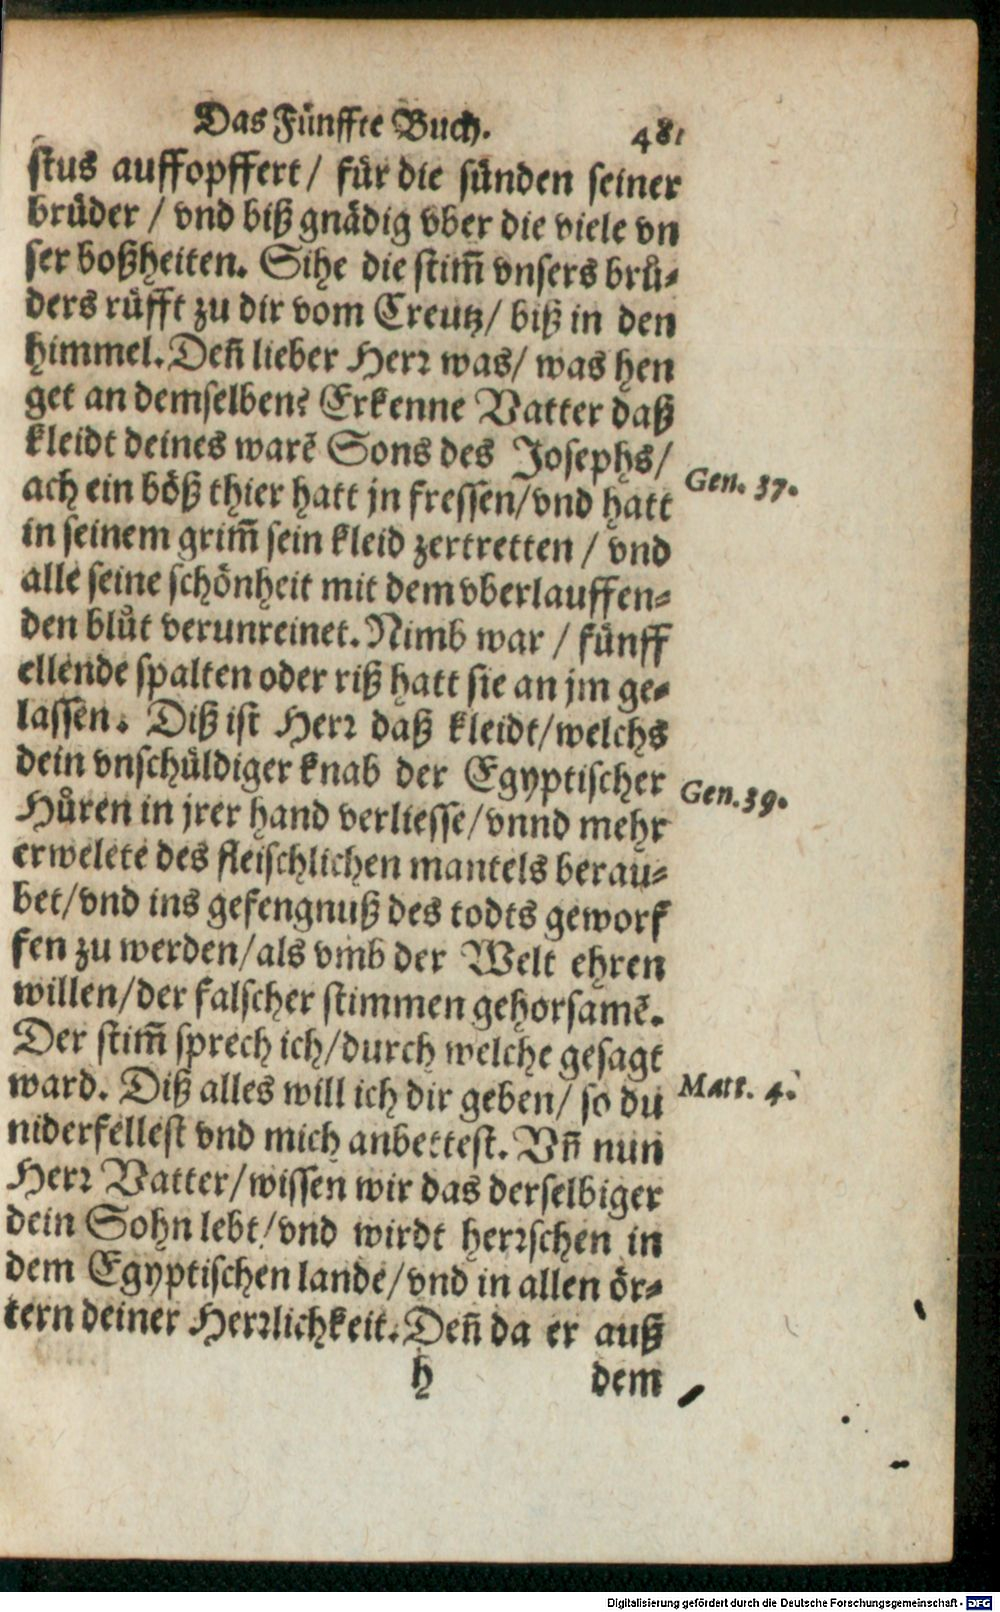 Das Fünffte Buch. 481
stus auffopffert / für die sünden seiner
brüder / vnd biß gnädig vber die viele vn
ser boßheiten. Sihe die stim̃ vnsers brů-
ders růfft zu dir vom Creutz / biß in den
himmel. Deñ lieber Herr was / was hen
get an demselben? Erkenne Vatter daß
kleidt deines warẽ Sons des Josephs /
Gen. 37.
ach ein böß thier hatt jn fressen / vnd hatt
in seinem grim̃ sein kleid zertretten / vnd
alle seine schönheit mit dem vberlauffen-
den blůt verunreinet. Nimb war / fünff
ellende spalten oder riß hatt sie an jm ge-
lassen. Diß ist Herr daß kleidt / welchs
dein vnschüldiger knab der Egyptischer
Gen. 39.
Hůren in jrer hand verliesse / vnnd mehr
erwelete des fleischlichen mantels berau-
bet / vnd ins gefengnuß des todts geworf
fen zu werden / als vmb der Welt ehren
willen / der falscher stimmen gehorsamẽ.
Der stim̃ sprech ich / durch welche gesagt
ward. Diß alles will ich dir geben / so du
Matt. 4.
niderfellest vnd mich anbettest. Vñ nun
Herr Vatter / wissen wir das derselbiger
dein Sohn lebt / vnd wirdt herrschen in
dem Egyptischen lande / vnd in allen ör-
tern deiner Herrlichkeit. Deñ da er auß
h dem
Digitalisierung gefördert durch die Deutsche Forschungsgemeinschaft - DFG